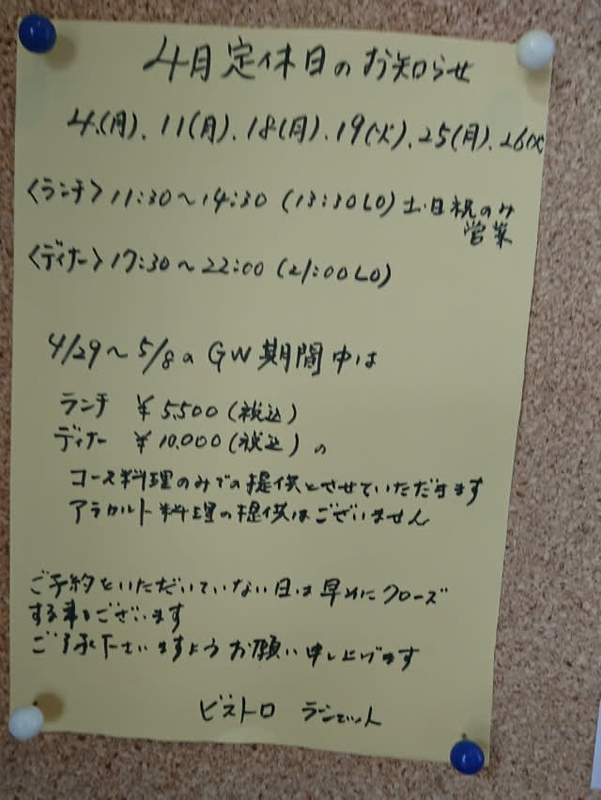 4月定休日のお知らせ
4.(月).11(月).18(月).19(火).25(月).26(火
〈ランチ〉11:30〜14:30(13:30LO)土日祝のみ
営業
〈ディナー〉17:30〜22:00(21:00LO)
4/29〜5/8の GW期間中は
ランチ ¥5,500(税込)
ディナー ¥10,000(税込)の
コース料理のみでの提供とさせていただきます
アラカルト料理の提供はございません
ご予約をいただいていない日は早めにクローズ
する事もございます
ご了承下さいますようお願い申し上げます
ビストロ